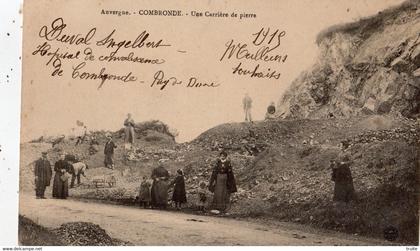 Auvergne. - COMBRONDE. - Une Carrière de pierre
Duval Ingelbert
1918
Hopital de convalescence
Meilleurs
de Combronde - Puy de Dome
souhaits